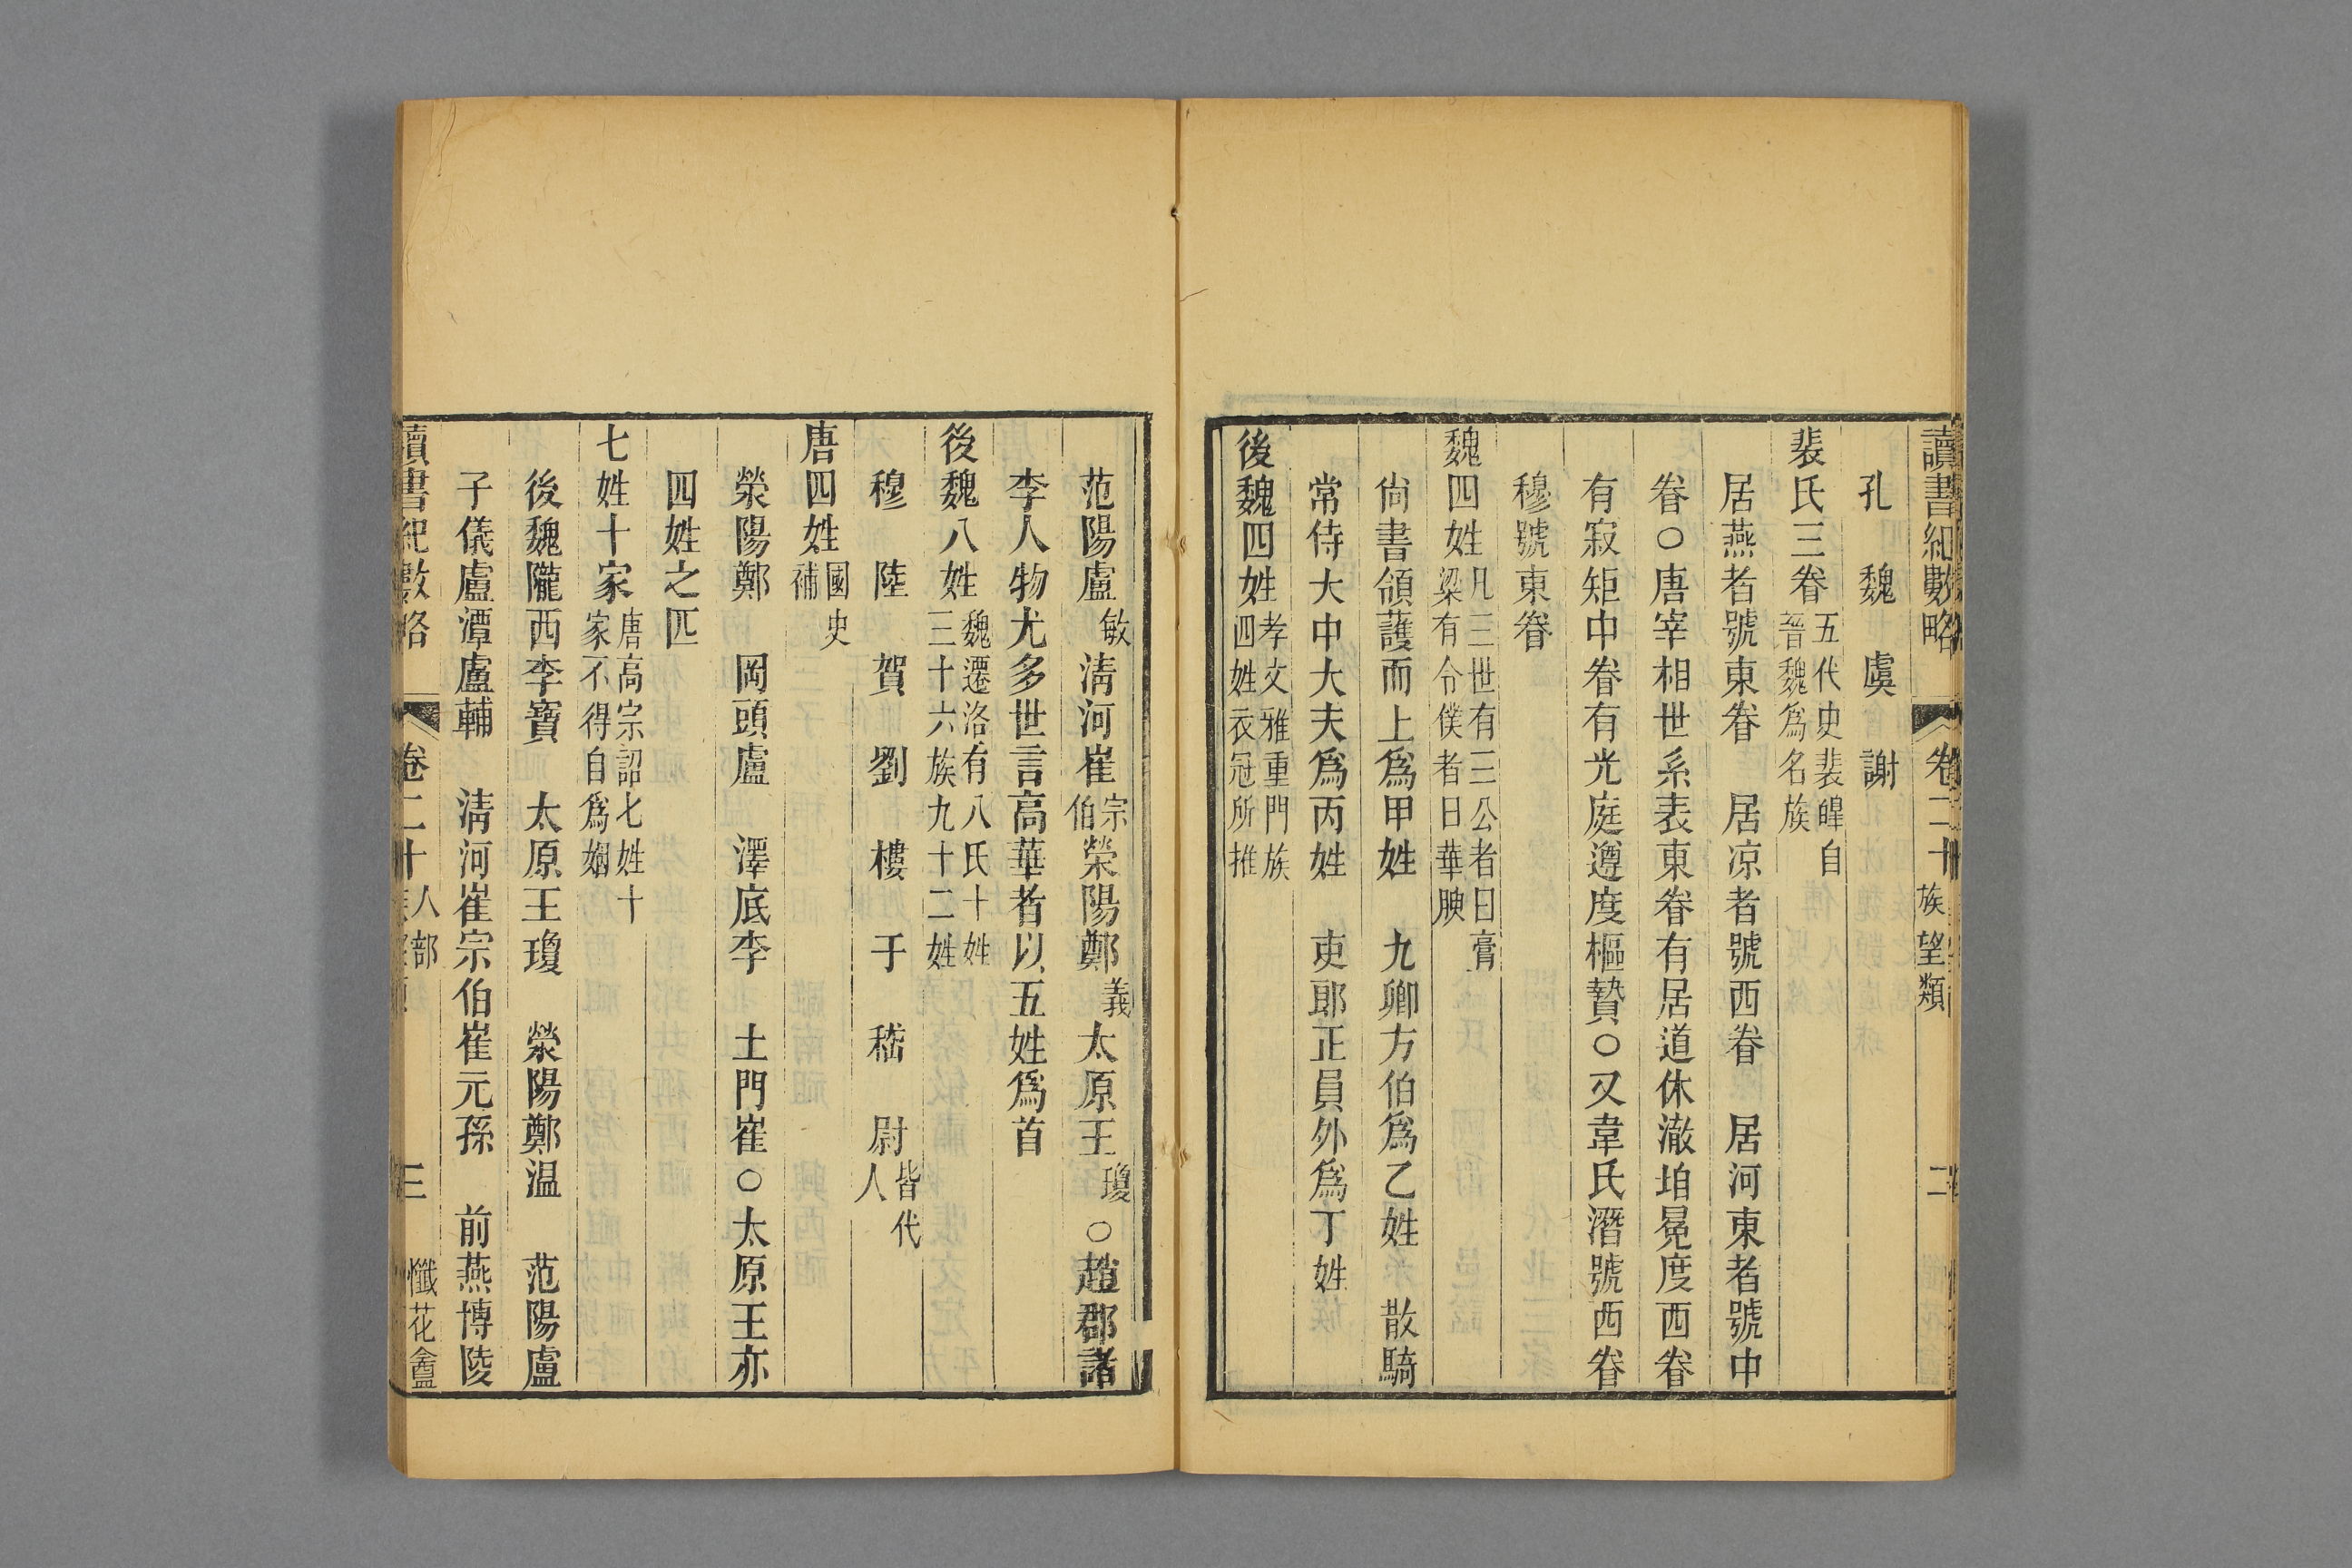 讀書紀數略 卷二十 族望類 二
孔 魏 虞 謝
裴氏三眷 五代史裴皥自晉魏爲名族
居燕者號東眷 居凉者號西眷 居河東者號中
眷○唐宰相世系表東眷有居道休澈垍冕度西眷
有寂矩中眷有光庭遵度樞贄○又韋氏潛號西眷
穆號東眷
魏四姓 凡三世有三公者曰膏梁有令僕者曰華腴
尙書領護而上爲甲姓 九卿方伯爲乙姓 散騎
常侍大中大夫爲丙姓 吏郎正員外爲丁姓
後魏四姓 孝文雅重門族四姓衣冠所推
范陽盧敏 淸河崔宗伯 榮陽鄭義 太原王瓊 ○趙郡諸
李人物尤多世言高華者以五姓爲首
後魏八姓 魏遷洛有八氏十姓三十六族九十二姓
穆 陸 賀 劉 樓 于 嵇 尉 皆代人
唐四姓 國史補
滎陽鄭 岡頭盧 澤底李 土門崔○太原王亦
四姓之匹
七姓十家 唐高宗詔七姓十家不得自爲婣
後魏隴西李寶 太原王瓊 滎陽鄭温 范陽盧
子儀盧潭盧輔 淸河崔宗伯崔元孫 前燕博陵
讀書紀數略 卷二十 人部 三 懺花盦